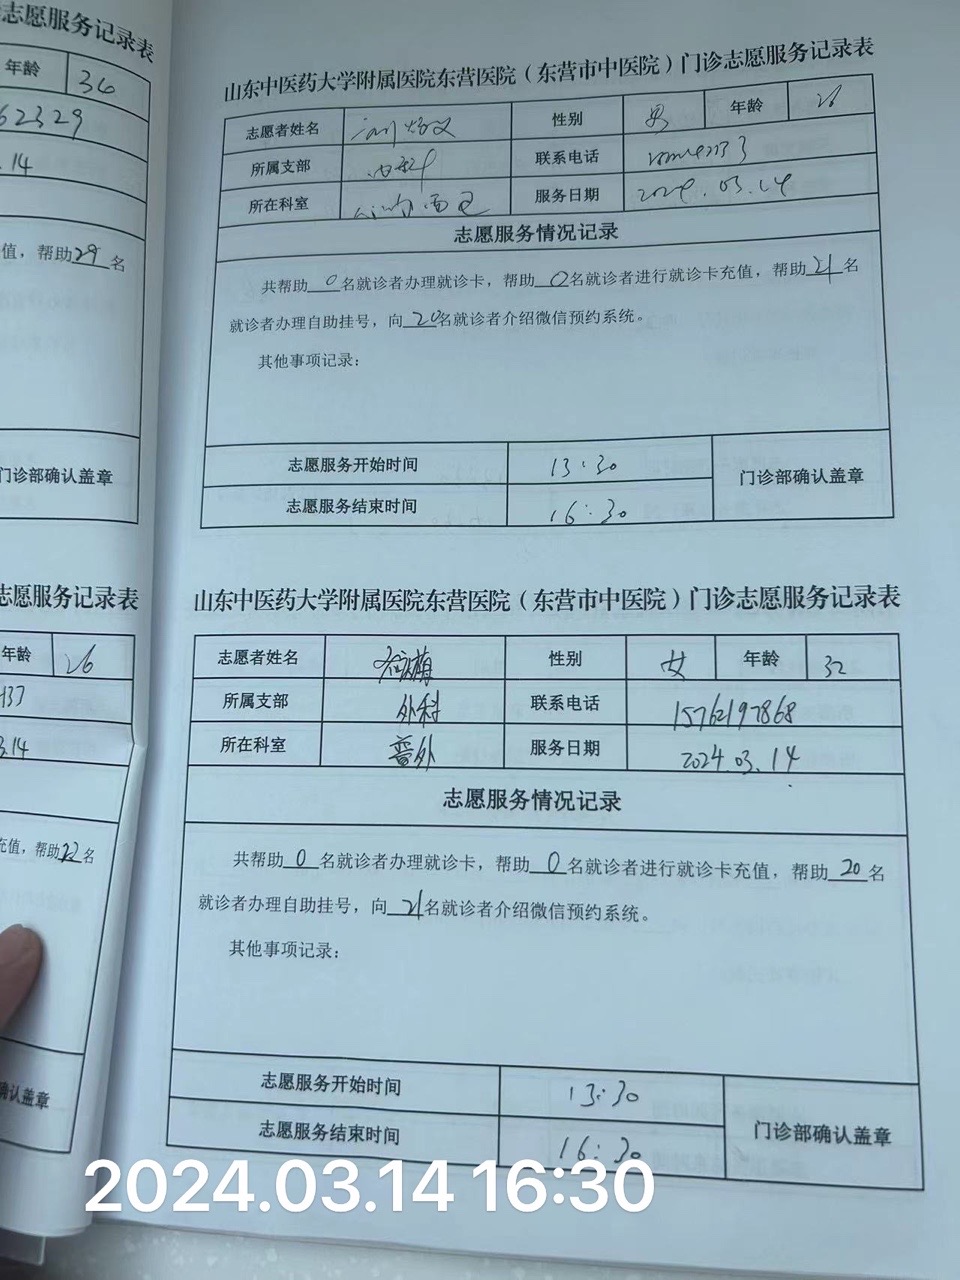 志愿服务记录表
年龄 36
62329
.14
值，帮助29名
门诊部确认盖章
志愿服务记录表
年龄 26
137
3.14
充值，帮助22名
确认盖章
山东中医药大学附属医院东营医院（东营市中医院）门诊志愿服务记录表
志愿者姓名 性别 男 年龄 26
所属支部 内科 联系电话
所在科室 服务日期 2024.03.14
志愿服务情况记录
共帮助0名就诊者办理就诊卡，帮助0名就诊者进行就诊卡充值，帮助21名
就诊者办理自助挂号，向20名就诊者介绍微信预约系统。
其他事项记录：
志愿服务开始时间 13:30
门诊部确认盖章
志愿服务结束时间 16:30
山东中医药大学附属医院东营医院（东营市中医院）门诊志愿服务记录表
志愿者姓名 性别 女 年龄 32
所属支部 外科 联系电话 15762197868
所在科室 普外 服务日期 2024.03.14
志愿服务情况记录
共帮助0名就诊者办理就诊卡，帮助0名就诊者进行就诊卡充值，帮助20名
就诊者办理自助挂号，向21名就诊者介绍微信预约系统。
其他事项记录：
志愿服务开始时间 13:30
门诊部确认盖章
志愿服务结束时间 16:30
2024.03.14 16:30